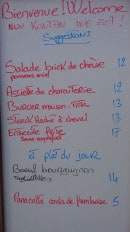 Bienvenue! Welcome
Suggestions
Salade brick de chèvre 12
pommes miel
Assiette de charcuterie 12
Burger maison - Frites 13
Steack Haché à cheval 12
Entrecôte Frite 17
Sauce roquefort
et plat du jour
Boeuf bourguignon
tagliatelles 14
Panacotta coulis de framboise 5